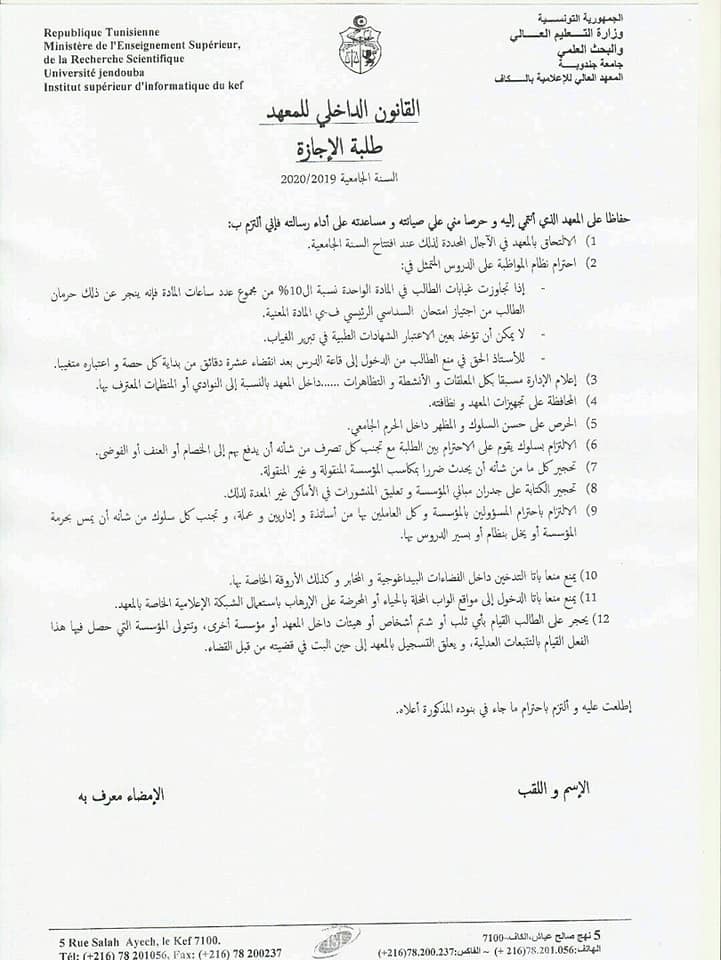 الجمهورية التونسية
وزارة التعليم العالي
والبحث العلمي
جامعة جندوبة
المعهد العالي للإعلامية بالكاف
Republique Tunisienne
Ministère de l'Enseignement Supérieur,
de la Recherche Scientifique
Université jendouba
Institut supérieur d'informatique du kef
القانون الداخلي للمعهد
طلبة الإجازة
السنة الجامعية 2020/2019
حفاظا على المعهد الذي أنتمي إليه و حرصا مني علي صيانته و مساعدته على أداء رسالته فإني ألتزم ب:
1) الالتحاق بالمعهد في الآجال المحددة لذلك عند افتتاح السنة الجامعية.
2) احترام نظام المواظبة على الدروس المتمثل في:
- إذا تجاوزت غيابات الطالب في المادة الواحدة نسبة ال10% من مجموع عدد ساعات المادة فإنه ينجر عن ذلك حرمان
الطالب من اجتياز امتحان السداسي الرئيسي ف-ي المادة المعنية.
- لا يمكن أن تؤخذ بعين الاعتبار الشهادات الطبية في تبرير الغياب.
- للأستاذ الحق في منع الطالب من الدخول إلى قاعة الدرس بعد انقضاء عشرة دقائق من بداية كل حصة و اعتباره متغيبا.
3) إعلام الإدارة مسبقا بكل المعلقات و الأنشطة و التظاهرات ......داخل المعهد بالنسبة إلى النوادي أو المنظمات المعترف بها.
4) المحافظة على تجهيزات المعهد و نظافته.
5) الحرص على حسن السلوك و المظهر داخل الحرم الجامعي.
6) الالتزام بسلوك يقوم على الاحترام بين الطلبة مع تجنب كل تصرف من شأنه أن يدفع بهم إلى الخصام أو العنف أو الفوضى.
7) تحجير كل ما من شأنه أن يحدث ضررا بمكاسب المؤسسة المنقولة و غير المنقولة.
8) تحجير الكتابة على جدران مباني المؤسسة و تعليق المنشورات في الأماكن غير المعدة لذلك.
9) الالتزام باحترام المسؤولين بالمؤسسة و كل العاملين بها من أساتذة و إداريين و عملة، و تجنب كل سلوك من شأنه أن يمس بحرمة
المؤسسة أو يخل بنظام أو بسير الدروس بها.
10) يمنع منعا باتا التدخين داخل الفضاءات البيداغوجية و المخابر و كذلك الأروقة الخاصة بها.
11) يمنع منعا باتا الدخول إلى مواقع الواب المخلة بالحياء أو المحرضة على الإرهاب باستعمال الشبكة الإعلامية الخاصة بالمعهد.
12) يحجر على الطالب القيام بأي ثلب أو شتم أشخاص أو هيئات داخل المعهد أو مؤسسة أخرى، وتتولى المؤسسة التي حصل فيها هذا
الفعل القيام بالتتبعات العدلية، و يعلق التسجيل بالمعهد إلى حين البت في قضيته من قبل القضاء.
إطلعت عليه و ألتزم باحترام ما جاء في بنوده المذكورة أعلاه.
الإسم و اللقب
الإمضاء معرف به
5 نهج صالح عياش،الكاف-7100
الهاتف:78.201.056(216 +) ~ الفاكس:78.200.237(216+)
5 Rue Salah Ayech, le Kef 7100.
Tél: (+216) 78 201056, Fax: (+216) 78 200237